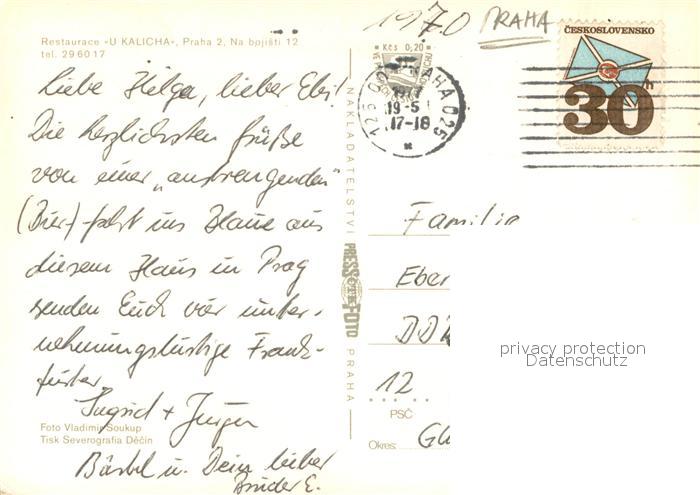 Restaurace «U KALICHA», Praha 2, Na bojišti 12
tel. 296017
1970 PRAHA
ČESKOSLOVENSKO
30h
Kčs 0,20
PRAHA 025
1977
19-5
17-18
Liebe Helga, lieber Eber
Die herzlichsten Grüße
von einer „anstrengenden"
(Bier)-fahrt ins Blaue aus
diesem Haus in Prag
senden Euch vier unter-
nehmungslustige Frank-
furter
Ingrid + Jürgen
Bärbel u. Dein lieber
Bruder E.
Foto Vladimír Soukup
Tisk Severografia Děčín
NAKLADATELSTVÍ PRESSFOTO PRAHA
Familie
Eber
DDR
12
PSČ
Okres:
privacy protection
Datenschutz